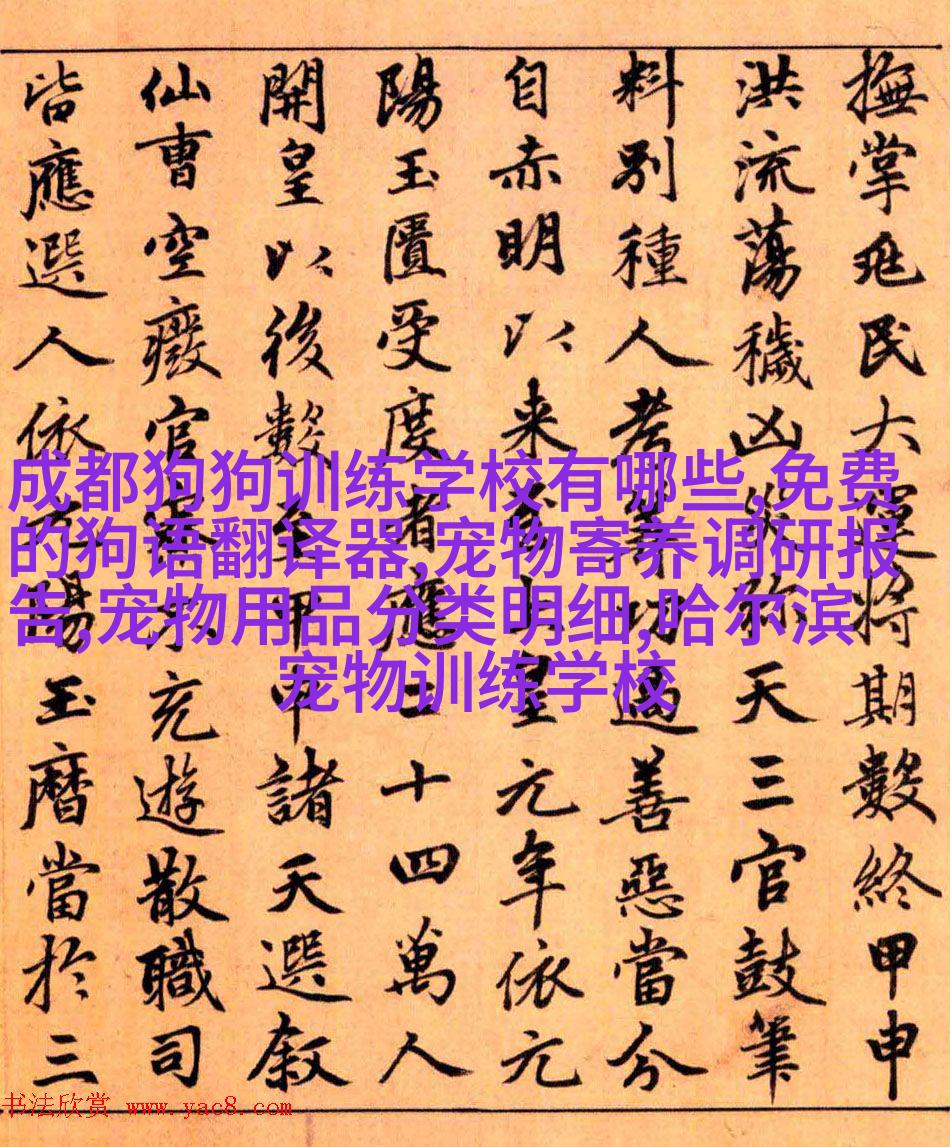 撫掌兆民大運將期數終甲申
洪流蕩穢凶災弥天三官鼓筆
料別種人考筭功過善惡當分
自赤明以来至上皇元年依元
陽玉匱受度者應二十四萬人
開皇以後數至甲申諸天選叙
仙曹空廢官僚不充遊散職司
皆應選人依太陽玉曆當於三
成都狗狗训练学校有哪些,免费
的狗语翻译器,宠物寄养调研报
告,宠物用品分类明细,哈尔滨
宠物训练学校
书法欣赏 www.yac8.com